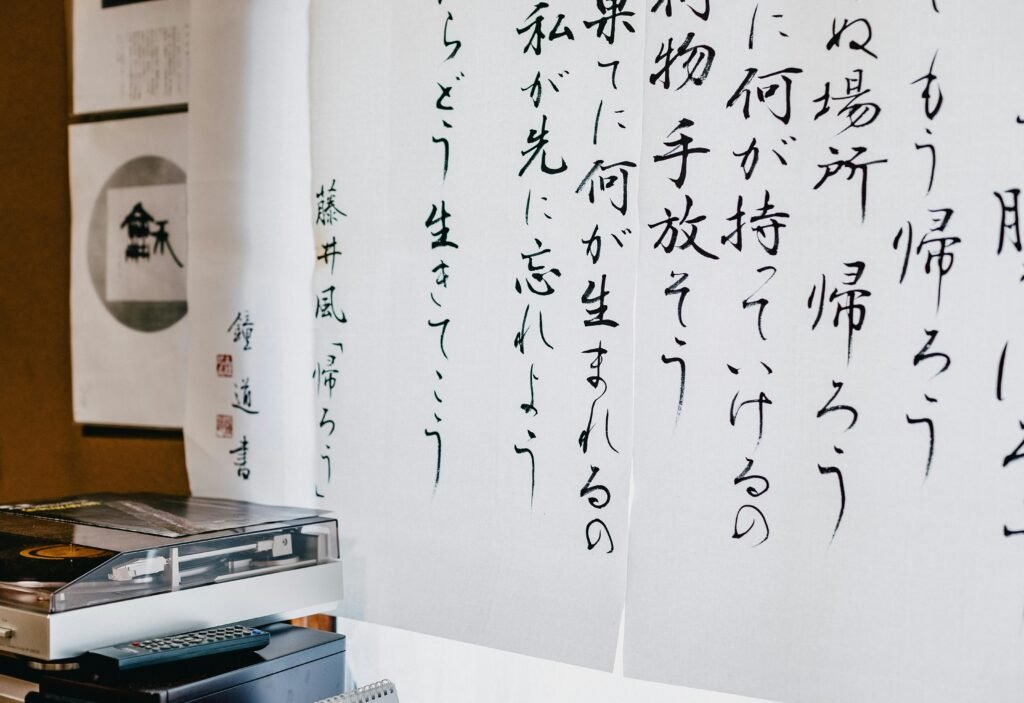 もう帰ろう
ぬ場所 帰ろう
に何が持っていけるの
荷物 手放そう
果てに何が生まれるの
私が先に忘れよう
らどう生きてこう
藤井風「帰ろう」
鐘道書